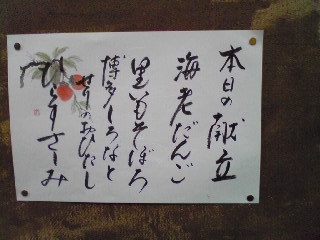 本日の献立
海老だんご
里いもそぼろ
博多しろなと
せりのおひたし
ひらすさしみ